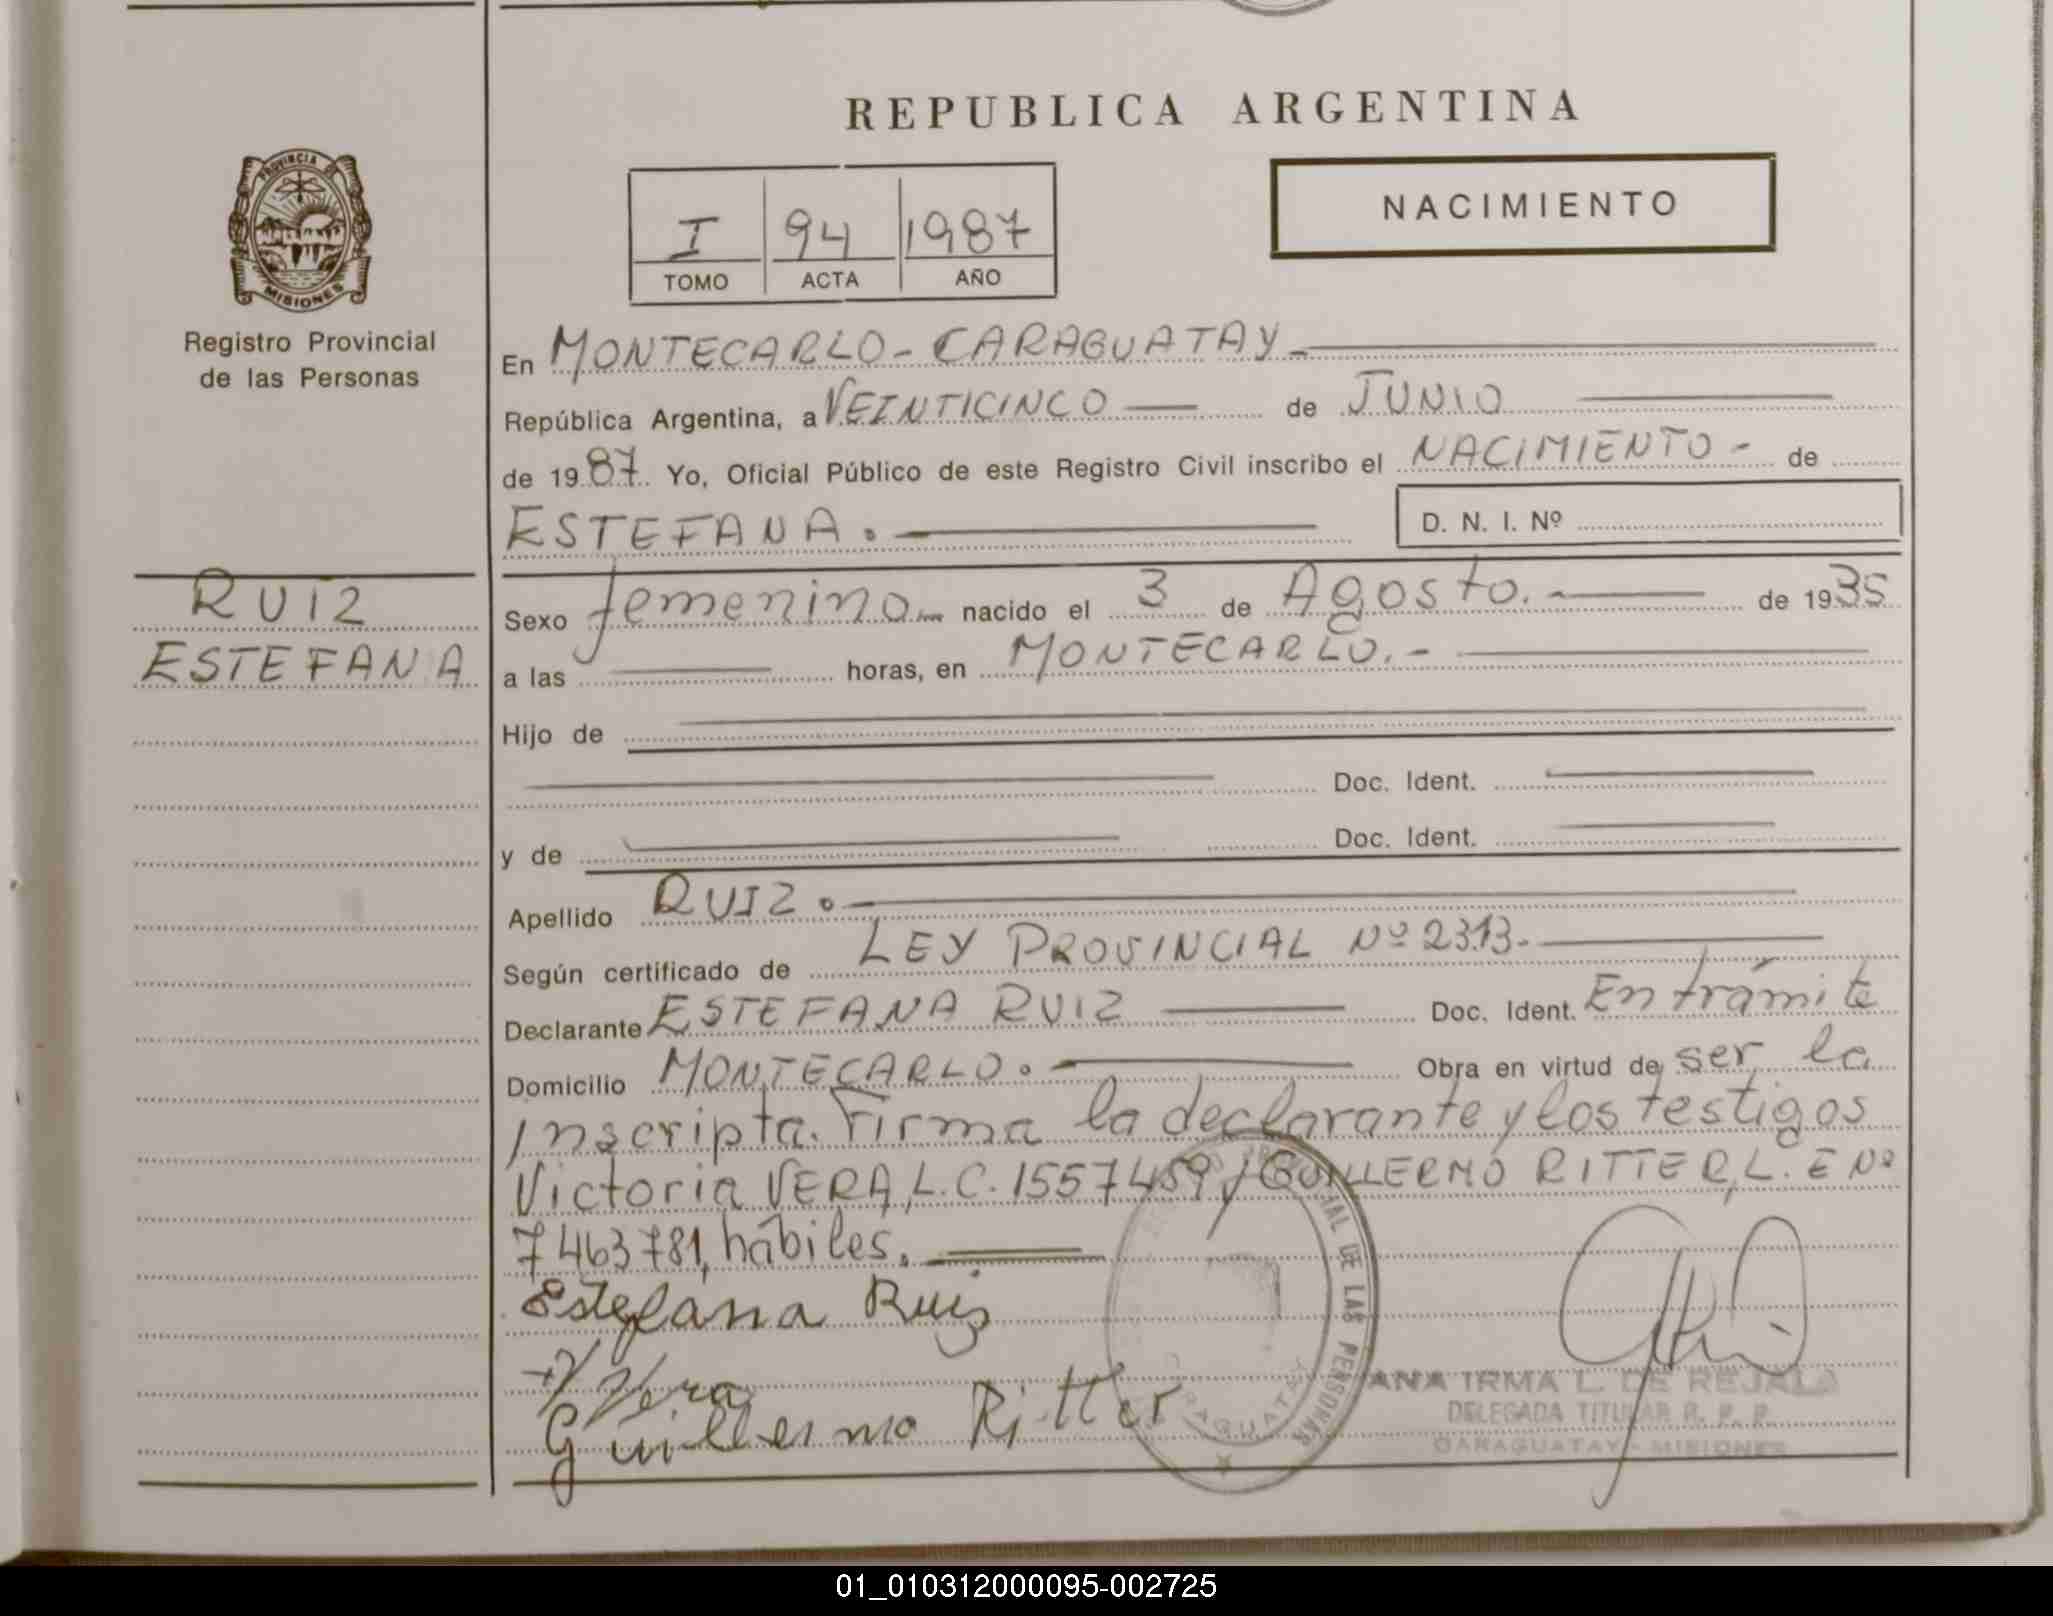 REPUBLICA ARGENTINA
PROVINCIA DE
MISIONES
Registro Provincial
de las Personas
I 94 1987
TOMO ACTA AÑO
NACIMIENTO
En MONTECARLO - CARAGUATAY -
República Argentina, a VEINTICINCO de JUNIO
de 1987. Yo, Oficial Público de este Registro Civil inscribo el NACIMIENTO - de
ESTEFANA.
D. N. I. Nº
RUIZ
ESTEFANA
Sexo femenino nacido el 3 de Agosto. de 1935
a las horas, en MONTECARLO. -
Hijo de
Doc. Ident.
y de Doc. Ident.
Apellido RUIZ.
Según certificado de LEY PROVINCIAL Nº 2313.
Declarante ESTEFANA RUIZ Doc. Ident. En trámite
Domicilio MONTECARLO. Obra en virtud de ser la
inscripta. Firma la declarante y los testigos
Victoria VERA, L.C. 1557459 y GUILLERMO RITTER, L. E Nº
7463781, hábiles.
Estefana Ruiz
Vera
Guillermo Ritter
PROVINCIAL DE LAS PERSONAS
CARAGUATAY
ANA IRMA L. DE REJALA
DELEGADA TITULAR R. P. P.
CARAGUATAY - MISIONES
01_010312000095-002725